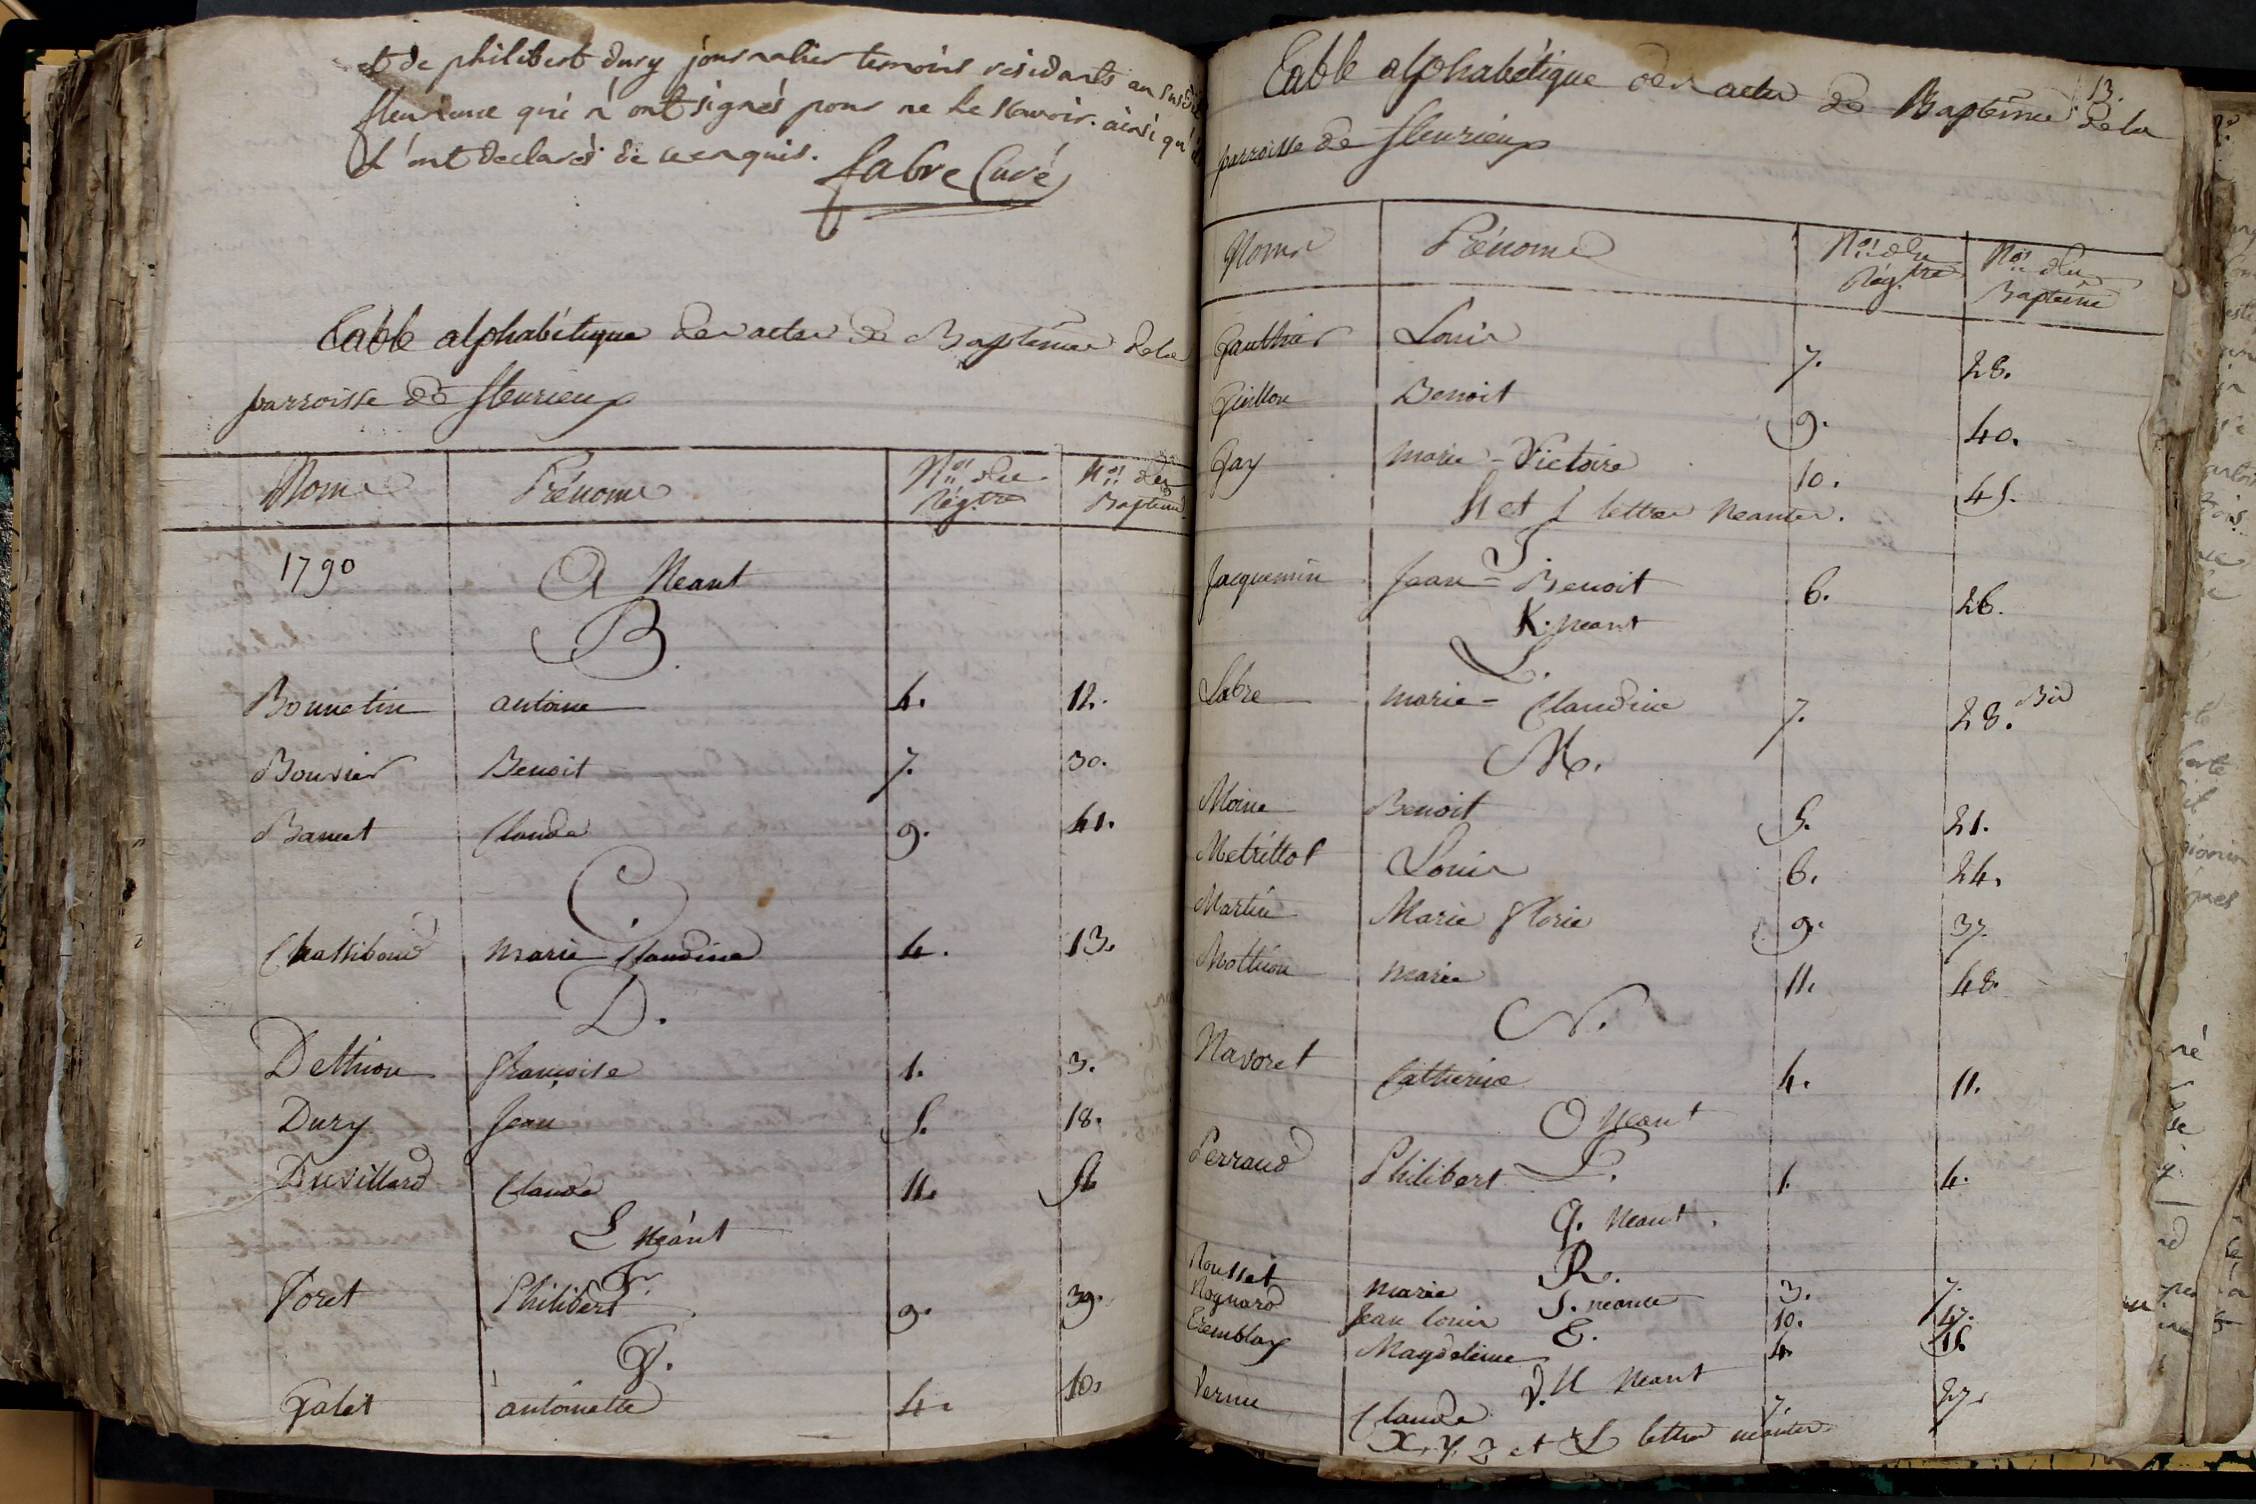 et de philibert dury journalier temoins residants au susdit
fleurieux qui n'ont signés pour ne le scavoir. ainsi qu'il
l'ont declarés de ce enquis. fabre Curé
Table alphabétique des actes de Baptêmes de la
parroisse de fleurieux
Noms Prénoms Nos. du Régtre Nos. des Baptemes
1790 A Neant
B.
Bonnetin antoine 4. 12.
Bouvier Benoit 7. 30.
Banet Claude 9. 41.
C.
Chassiboud marie Claudine 4. 13.
D.
Dethion françoise 1. 3.
Dury Jean 5. 18.
Duvillard Claude 11.
E Néant
F.
Foret Philibert 9. 39.
G.
Galet antoinette 4. 10.
13.
Table alphabétique des actes de Baptêmes de la
parroisse de fleurieux
Noms Prénoms Nos. du Régtre Nos. du Bapteme
Gauthier Louis 7. 28.
Guillon Benoit 9. 40.
Gay marie-Victoire 10. 45.
H et I lettres Neantes.
J.
Jacquemin Jean-Benoit 6. 26.
K. Neant
L.
Labre marie-Claudine 7. 28. Bis
M.
Moine Benoit 5. 21.
Metrillot Louis 6. 24.
Martin Marie florie 9. 37.
Mothion marie 11. 48.
N.
Navoret Catherine 4. 11.
O Neant
P.
Perraud Philibert 1. 4.
q. Neant.
R.
Rousset marie 3. 7.
S. neante
Rognard Jean louis 10. 47.
T.
Tremblay Magdeleine 4.
U Neant
V.
Vernu Claude 7. 27.
X, Y, Z et & lettres néantes.